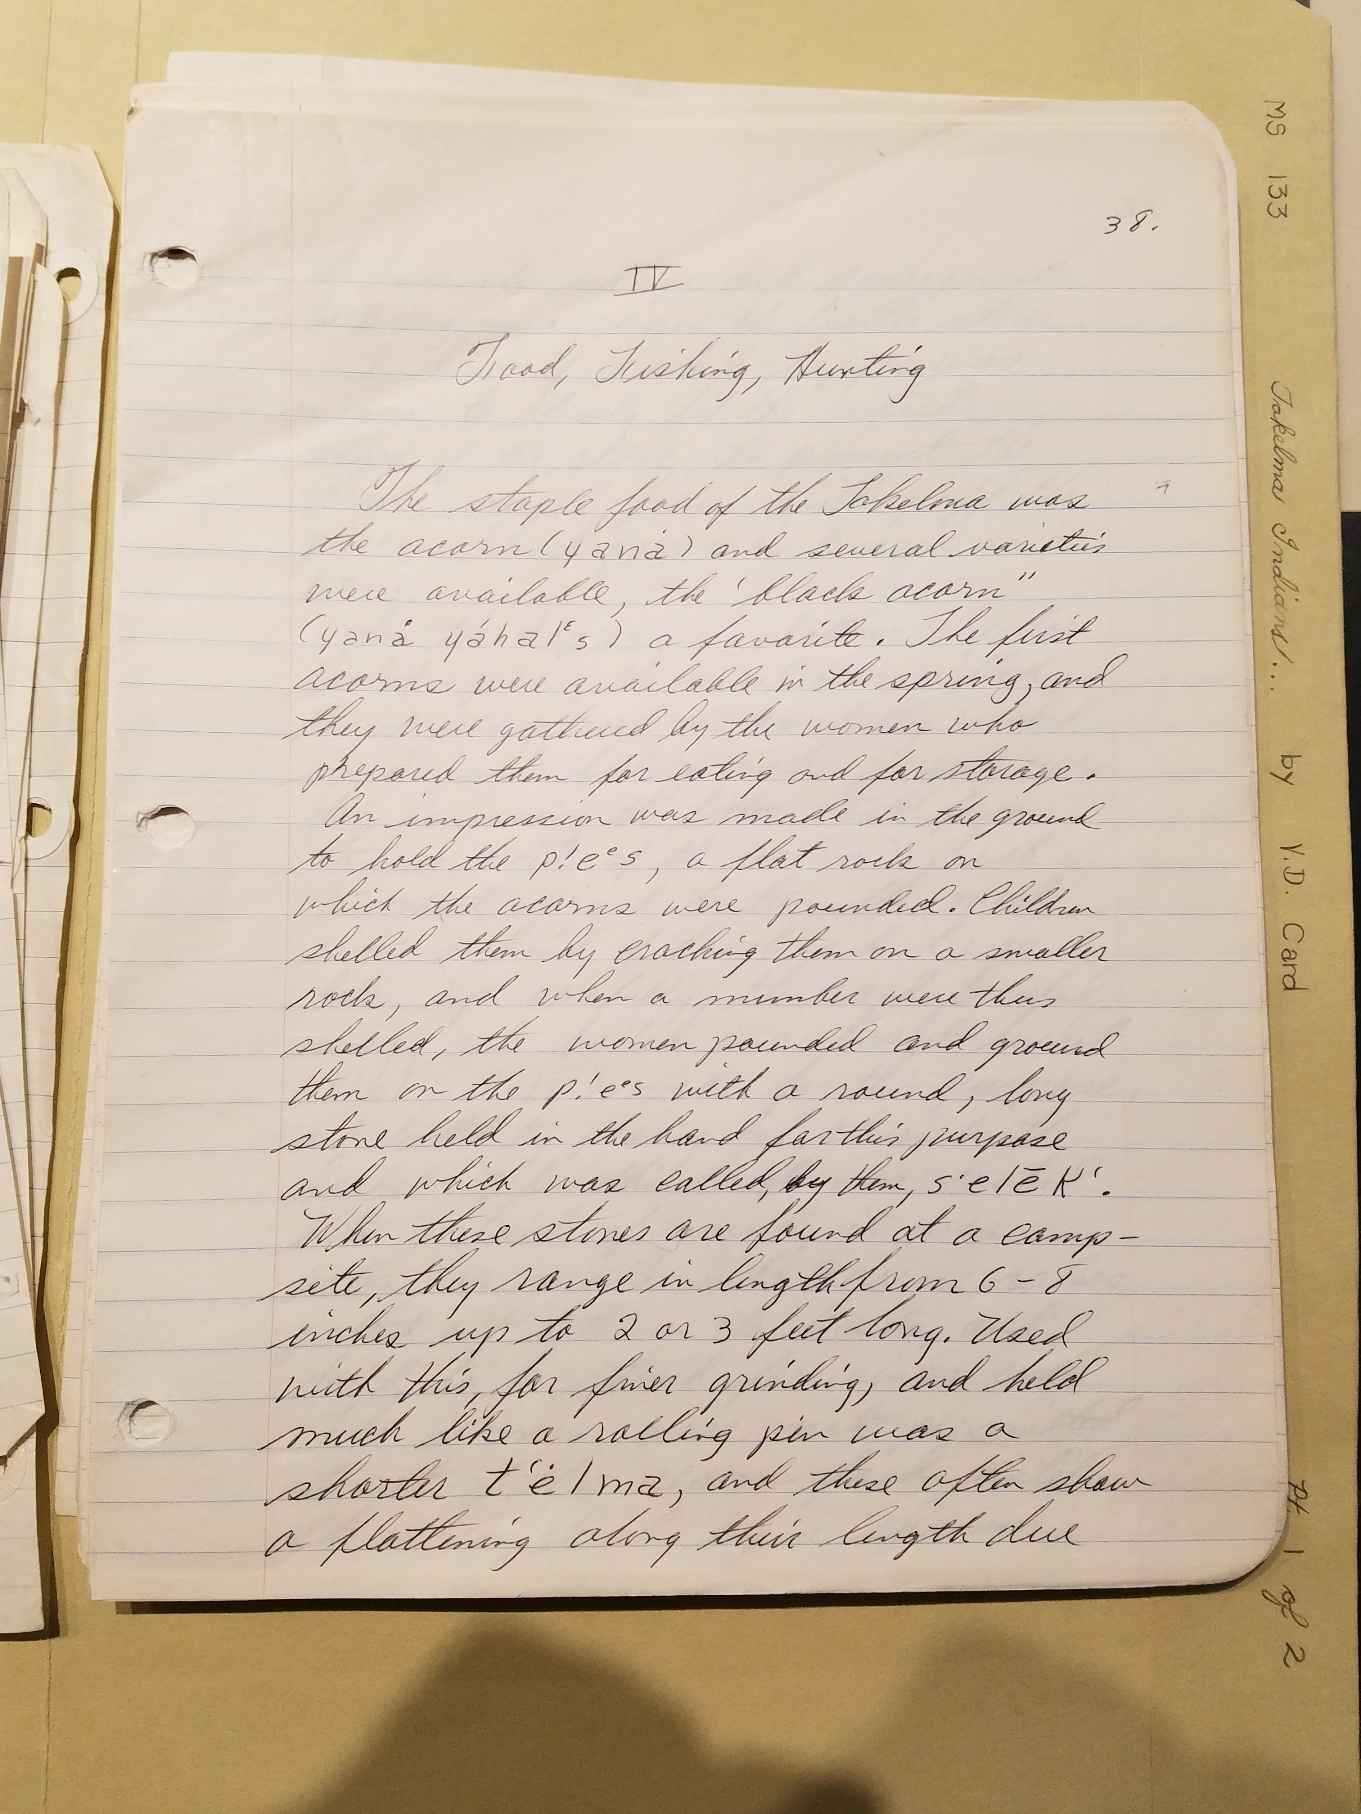 38.
IV
Food, Fishing, Hunting
The staple food of the Takelma was
the acorn (yanà) and several varieties
were available, the 'black acorn"
(yanå yáhalᵋs) a favorite. The first
acorns were available in the spring, and
they were gathered by the women who
prepared them for eating and for storage.
An impression was made in the ground
to hold the p!eᵉs, a flat rock on
which the acorns were pounded. Children
shelled them by cracking them on a smaller
rock, and when a number were thus
shelled, the women pounded and ground
them on the p!eᵉs with a round, long
stone held in the hand for this purpose
and which was called, by them, s·elēk‘.
When these stones are found at a camp-
site, they range in length from 6-8
inches up to 2 or 3 feet long. Used
with this, for finer grinding, and held
much like a rolling pin was a
shorter t‘élma, and these often show
a flattening along their length due
MS 133 Takelma Indians... by V.D. Card pt 1 of 2